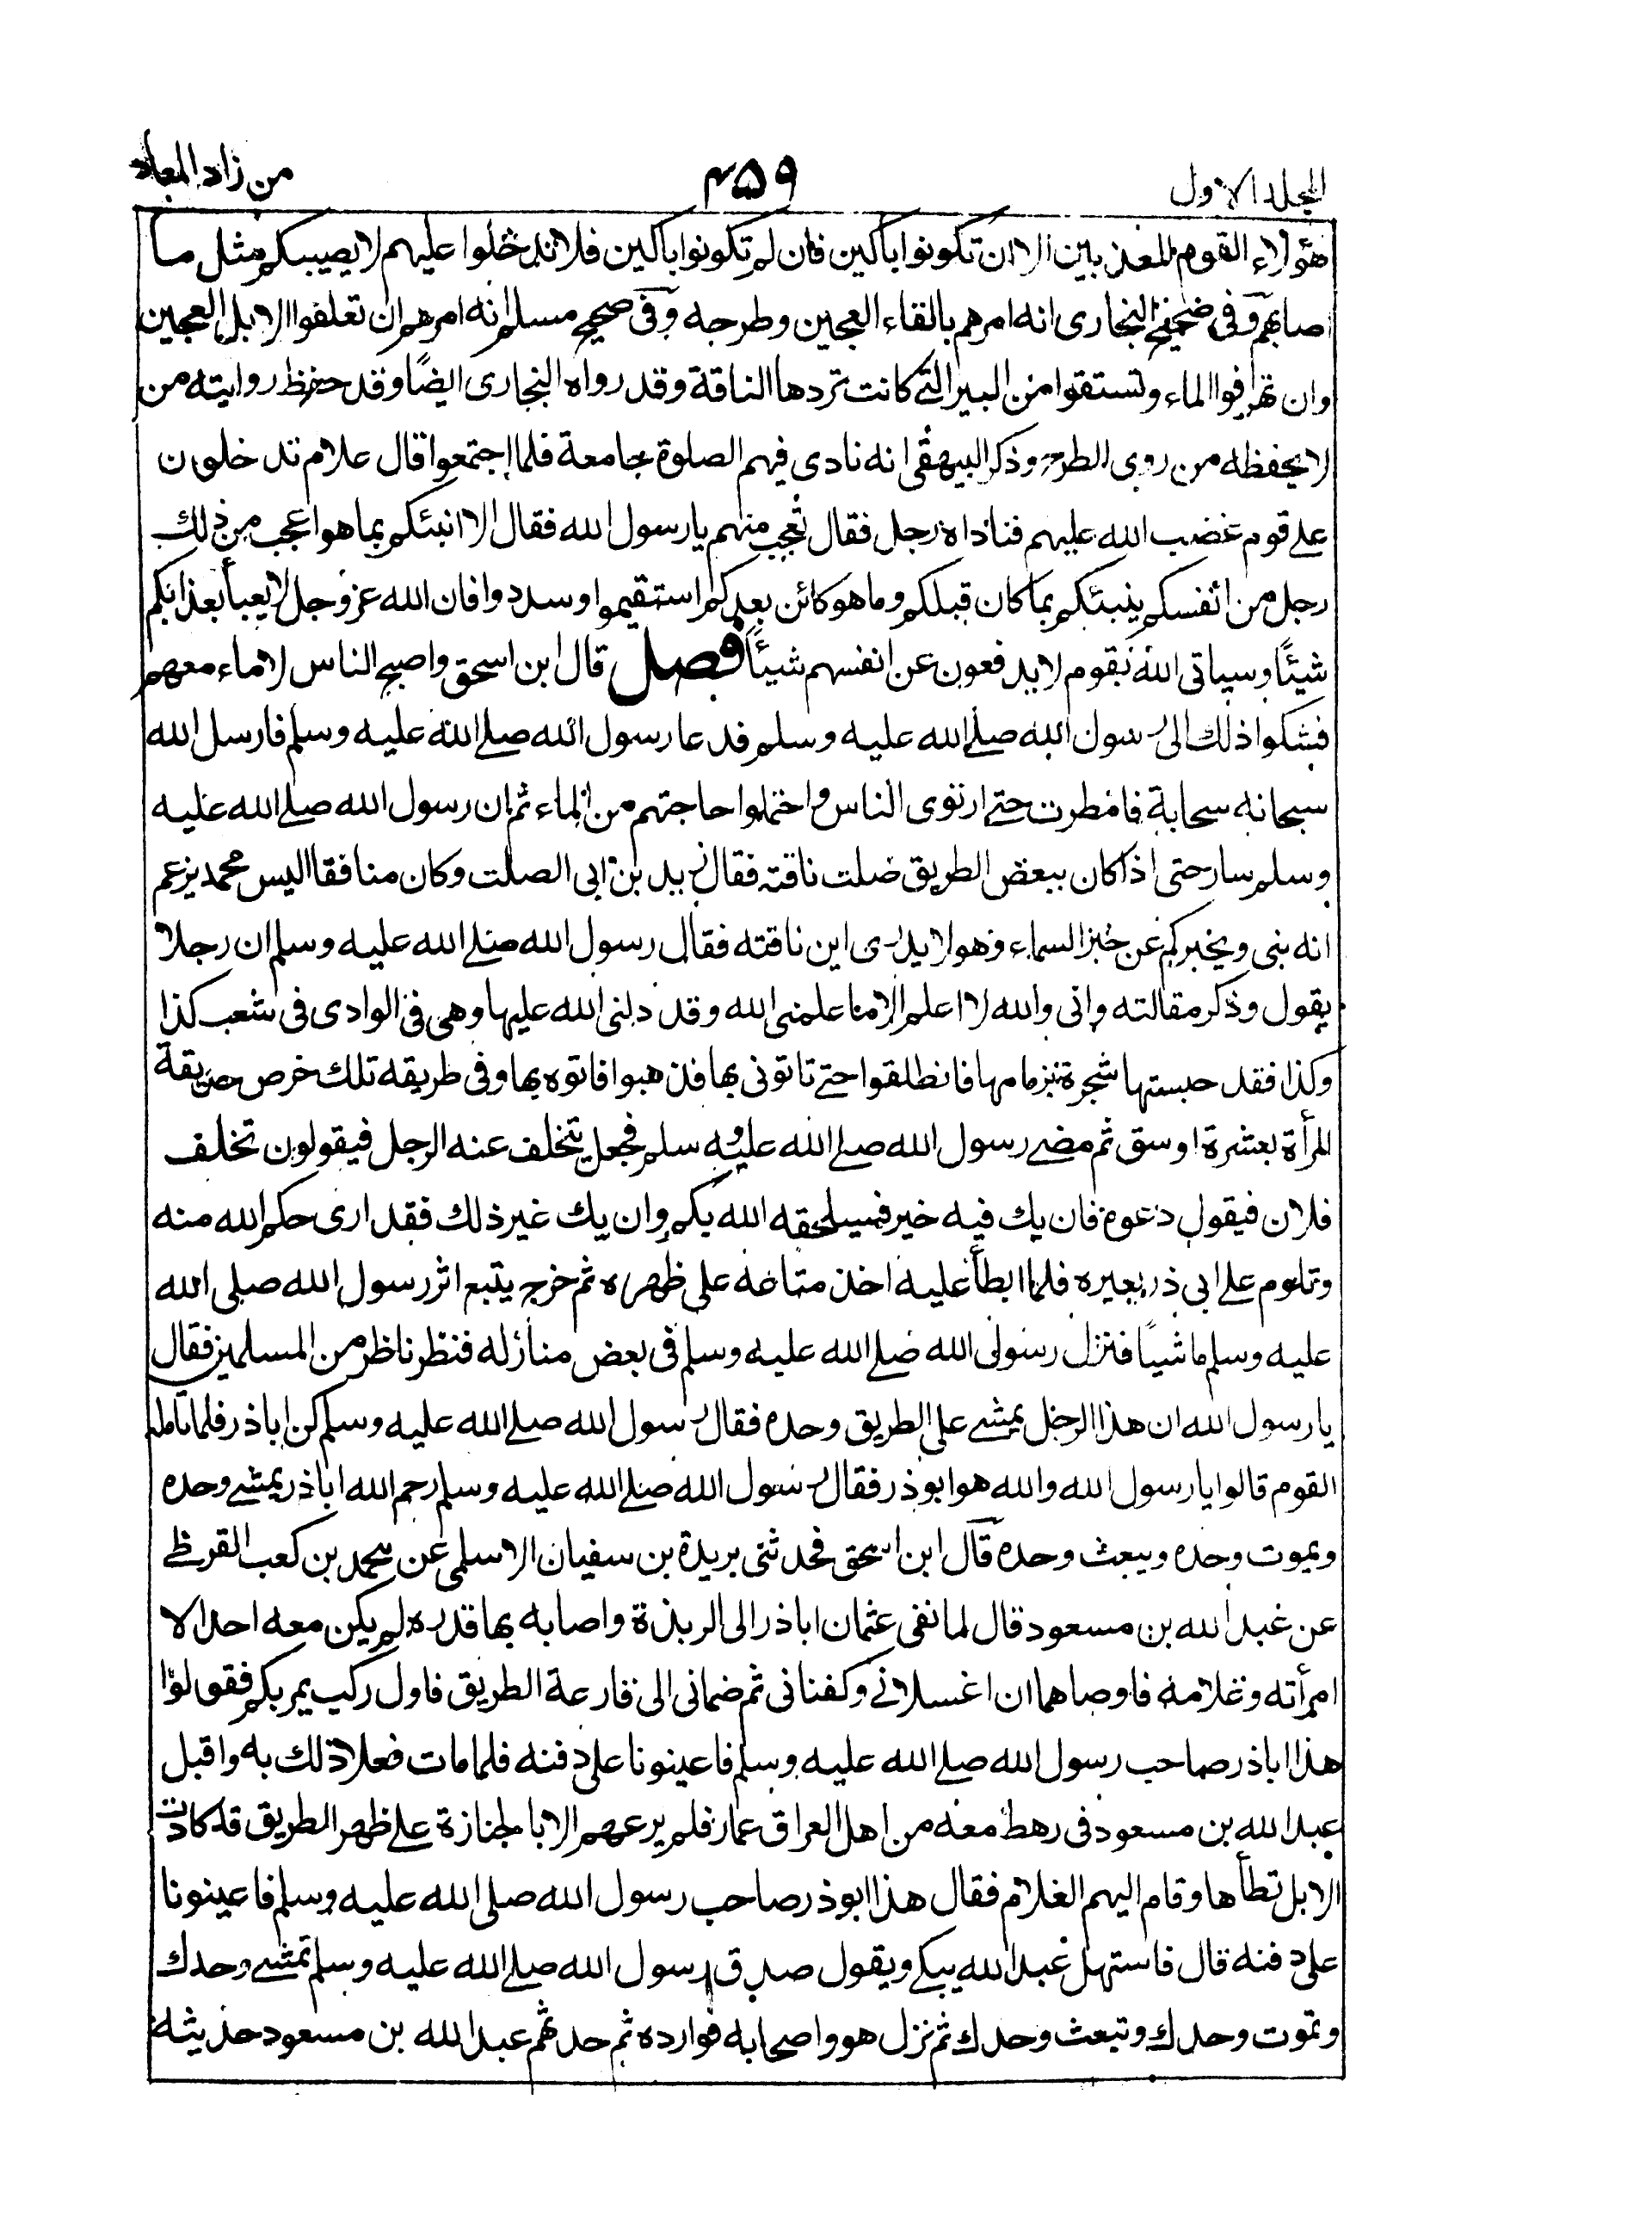 المجلد الاول
۴۵۹
من زاد المعاد
هؤلاء القوم المعذبين الا ان تكونوا باكين فان لم تكونوا باكين فلا تدخلوا عليهم لا يصيبكم مثل ما
اصابهم وفي صحيح البخارى انه امرهم بالقاء العجين وطرحه وفى صحيح مسلم انه امرهم ان تعلفوا الابل العجين
وان تهراقوا الماء وتستقوا من البير التى كانت تردها الناقة وقد رواه البخارى ايضًا وقد حفظ روايته من
لا يحفظه من روى الطرح وذكر البيهقى انه نادى فيهم الصلوة جامعة فلما اجتمعوا قال علام تدخلون
على قوم غضب الله عليهم فناداه رجل فقال نعجب منهم يا رسول الله فقال الا انبئكم بما هو اعجب من ذلك
رجل من انفسكم ينبئكم بما كان قبلكم وما هو كائن بعدكم استقيموا وسددوا فان الله عز وجل لا يعبأ بعذابكم
شيئًا وسياتى الله بقوم لا يدفعون عن انفسهم شيئًا فصل قال ابن اسحق واصبح الناس لا ماء معهم
فشكوا ذلك الى رسول الله صلى الله عليه وسلم فدعا رسول الله صلى الله عليه وسلم فارسل الله
سبحانه سحابة فامطرت حتى ارتوى الناس واحتملوا حاجتهم من الماء ثم ان رسول الله صلى الله عليه
وسلم سار حتى اذا كان ببعض الطريق ضلت ناقته فقال زيد بن ابى الصلت وكان منافقا اليس محمد يزعم
انه نبى ويخبركم عن خبر السماء وهو لا يدرى اين ناقته فقال رسول الله صلى الله عليه وسلم ان رجلا
يقول وذكر مقالته وانى والله لا اعلم الا ما علمنى الله وقد دلنى الله عليها وهى فى الوادى فى شعب كذا
وكذا فقد حبستها شجرة بزمامها فانطلقوا حتى تاتونى بها فذهبوا فاتوه بها وفى طريقه تلك خرص حديقة
المرأة بعشرة اوسق ثم مضى رسول الله صلى الله عليه وسلم فجعل يتخلف عنه الرجل فيقولون تخلف
فلان فيقول دعوه فان يك فيه خير فسيلحقه الله بكم وان يك غير ذلك فقد ارى حكم الله منه
وتلوم على ابى ذر بعيره فلما ابطأ عليه اخذ متاعه على ظهره ثم خرج يتبع اثر رسول الله صلى الله
عليه وسلم ماشيًا فنزل رسول الله صلى الله عليه وسلم فى بعض منازله فنظر ناظر من المسلمين فقال
يا رسول الله ان هذا الرجل يمشى على الطريق وحده فقال رسول الله صلى الله عليه وسلم كن اباذر فلما تامله
القوم قالوا يا رسول الله والله هو ابو ذر فقال رسول الله صلى الله عليه وسلم رحم الله اباذر يمشى وحده
ويموت وحده ويبعث وحده قال ابن اسحق فحدثنى بريدة بن سفيان الاسلمى عن محمد بن كعب القرظى
عن عبد الله بن مسعود قال لما نفى عثمان اباذر الى الربذة واصابه بها قدره لم يكن معه احد الا
امرأته وغلامه فاوصاهما ان اغسلانى وكفنانى ثم ضمانى الى قارعة الطريق فاول ركب يمر بكم فقولوا
هذا اباذر صاحب رسول الله صلى الله عليه وسلم فاعينونا على دفنه فلما مات فعلا ذلك به واقبل
عبد الله بن مسعود فى رهط معه من اهل العراق عمار فلم يرعهم الا بالجنازة على ظهر الطريق قد كادت
الابل تطأها وقام اليهم الغلام فقال هذا ابو ذر صاحب رسول الله صلى الله عليه وسلم فاعينونا
على دفنه قال فاستهل عبد الله يبكى ويقول صدق رسول الله صلى الله عليه وسلم تمشى وحدك
وتموت وحدك وتبعث وحدك ثم نزل هو واصحابه فواروه ثم حدثهم عبد الله بن مسعود حديثه